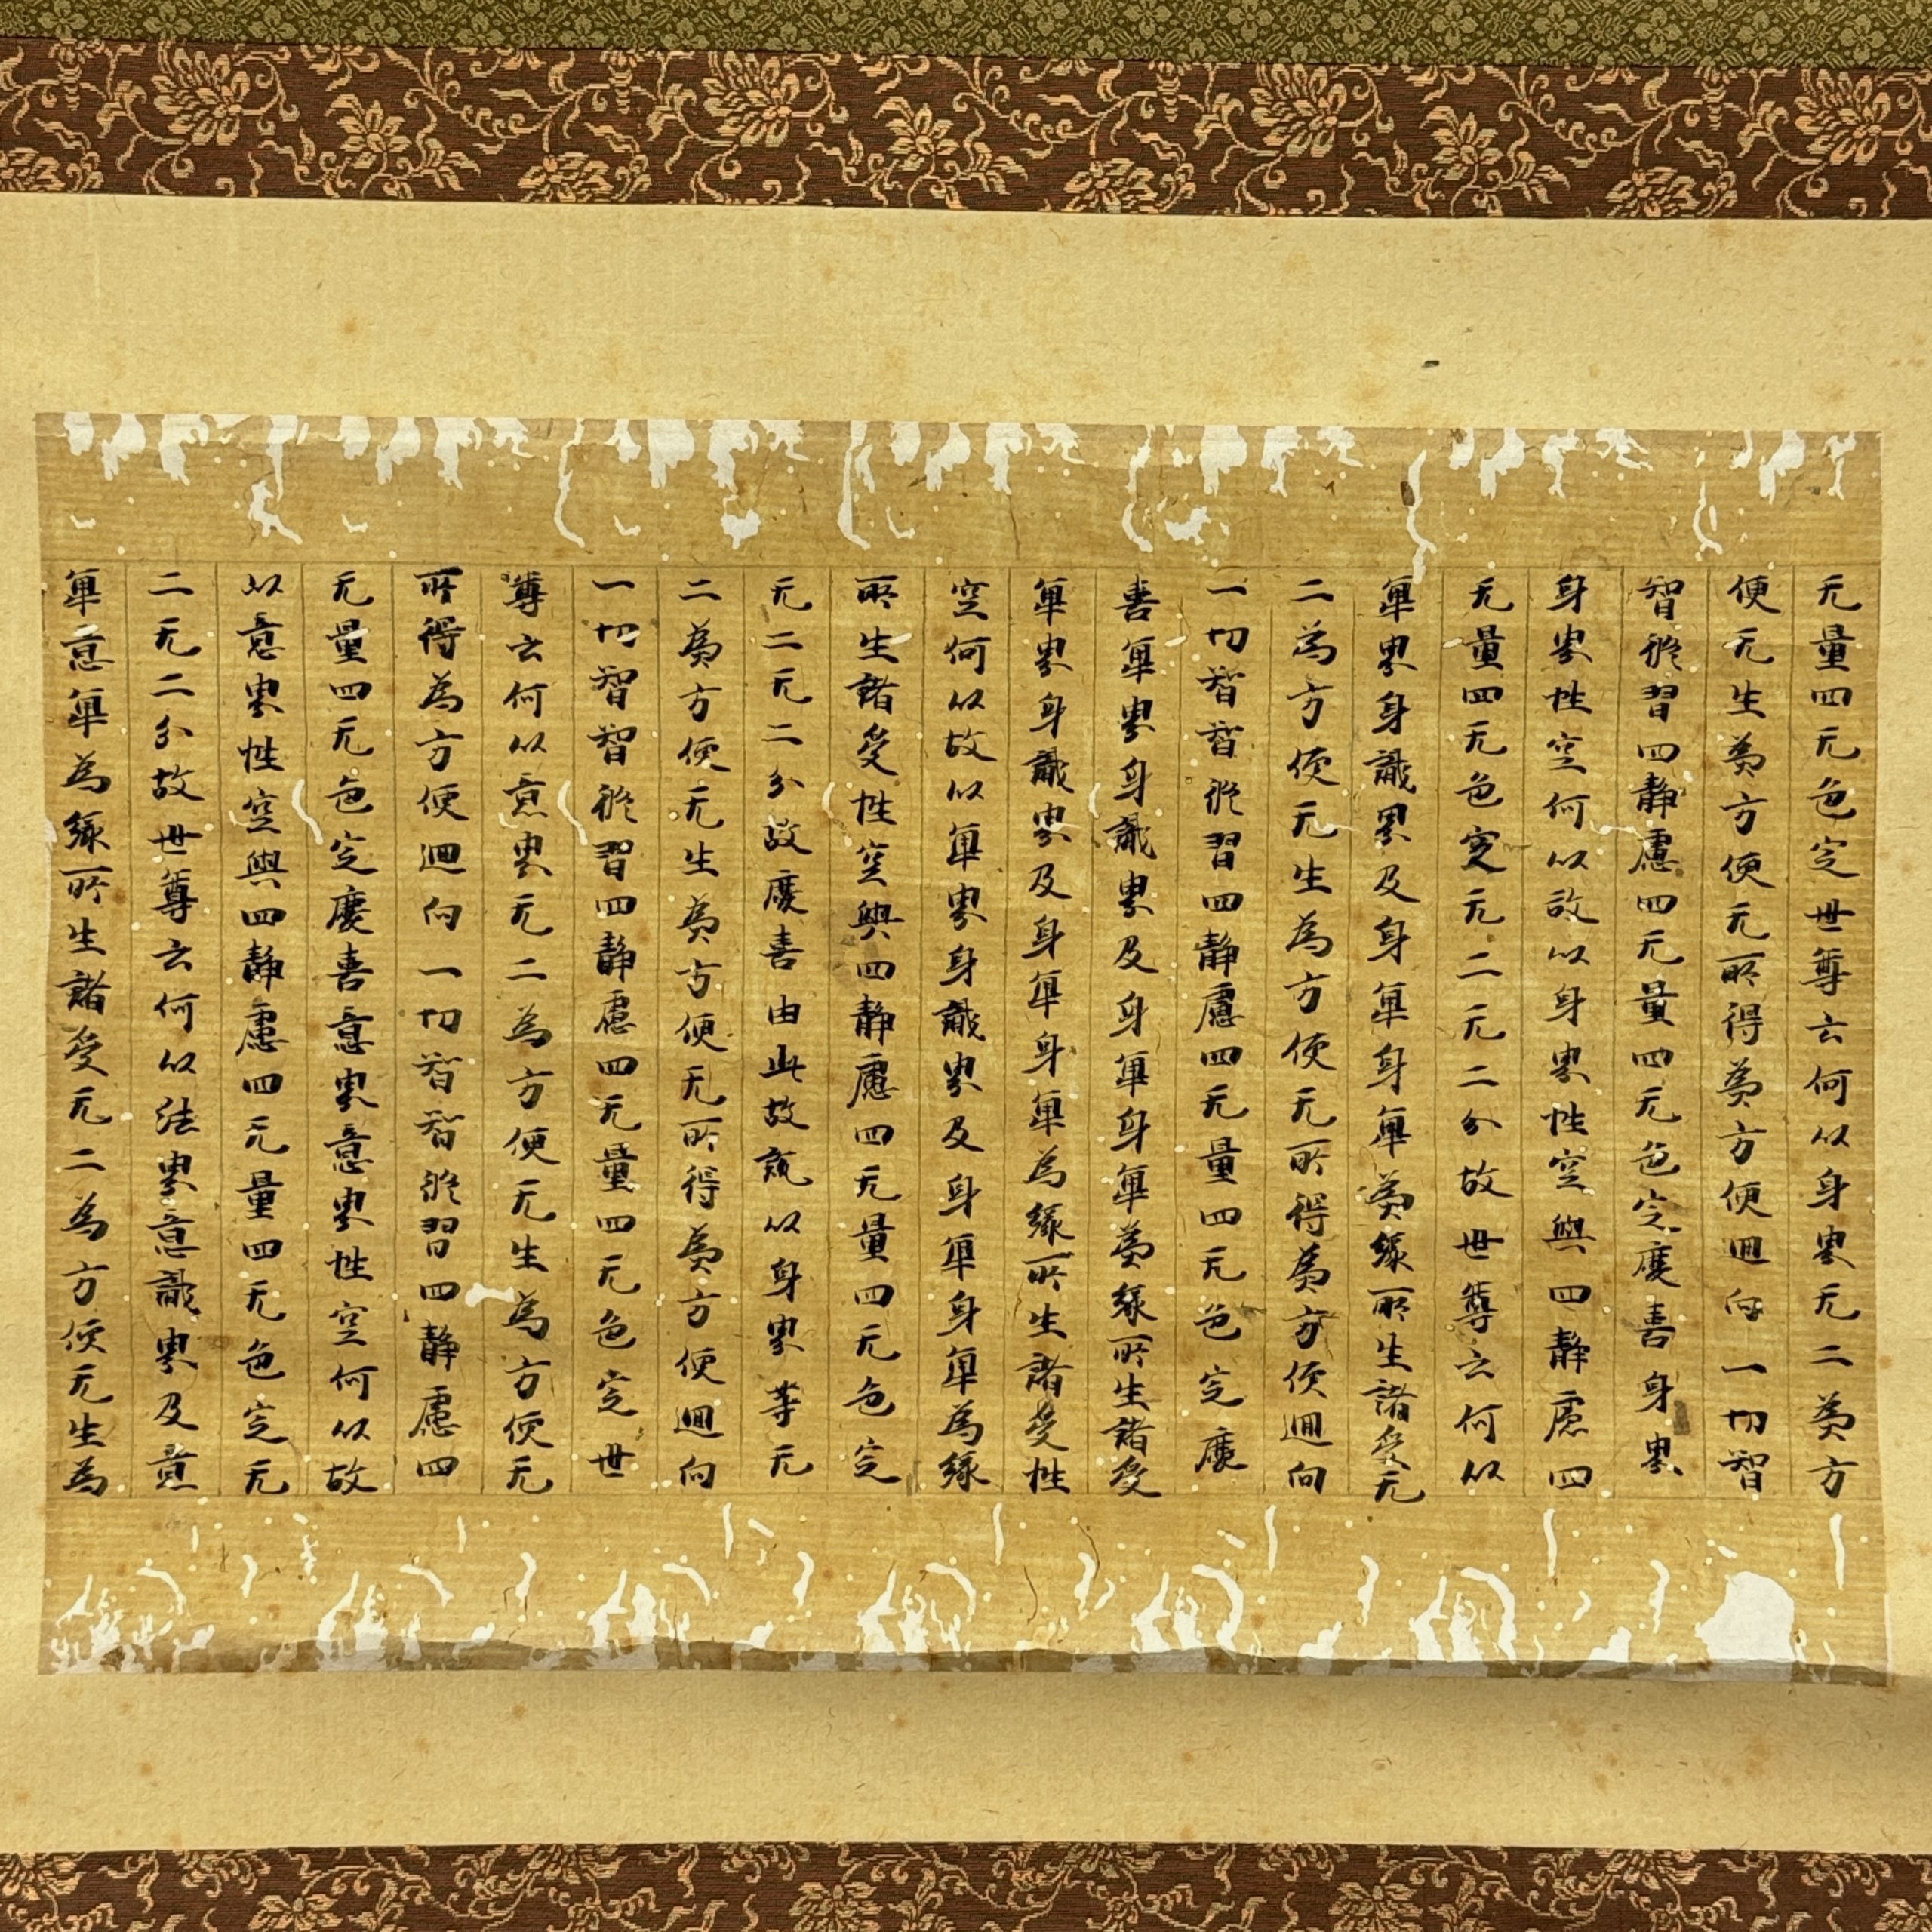 无量四无色定世尊云何以身界无二為方
便无生為方便无所得為方便迴向一切智
智修習四静慮四无量四无色定慶喜身界
身界性空何以故以身界性空與四静慮四
无量四无色定无二无二分故世尊云何以
觸界身識界及身觸身觸為緣所生諸受无
二為方便无生為方便无所得為方便迴向
一切智智修習四静慮四无量四无色定慶
喜觸界身識界及身觸身觸為緣所生諸受
觸界身識界及身觸身觸為緣所生諸受性
空何以故以觸界身識界及身觸身觸為緣
所生諸受性空與四静慮四无量四无色定
无二无二分故慶喜由此故說以身界等无
二為方便无生為方便无所得為方便迴向
一切智智修習四静慮四无量四无色定世
尊云何以意界无二為方便无生為方便无
所得為方便迴向一切智智修習四静慮四
无量四无色定慶喜意界意界性空何以故
以意界性空與四静慮四无量四无色定无
二无二分故世尊云何以法界意識界及意
觸意觸為緣所生諸受无二為方便无生為